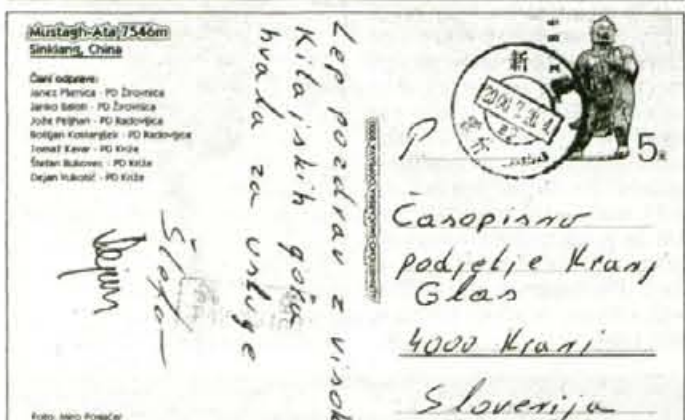 Mustagh-Ata, 7546m
Sinkiang, China
Člani odprave:
Janez Plemica - PD Žirovnica
Janko Balon - PD Žirovnica
Jože Peljhan - PD Radovljica
Boštjan Kostanjšek - PD Radovljica
Tomaž Kavar - PD Križe
Štefan Bukovec - PD Križe
Dejan Vukotić - PD Križe
Lep pozdrav z visok
Kitajskih gora
hvala za usluge
Štefan
Dejan
ALPINISTIČNO SMUČARSKA ODPRAVA 2000
新
5元
P
Časopisno
podjetje Kranj
Glas
4000 Kranj
Slovenija
Foto: Miro Pogačar